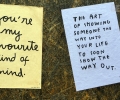 you're
my
favourite
kind of
mind.
THE ART OF
SHOWING
SOMEONE THE
WAY INTO
YOUR LIFE
TO SOON
SHOW THE
WAY OUT.